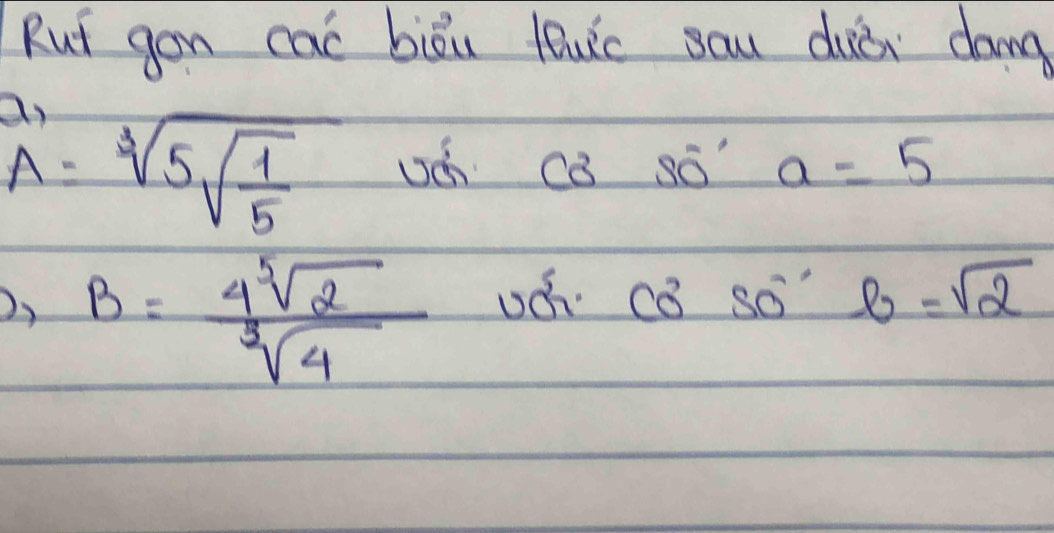 Rút gọn các biểu thức sau dưới dạng
a,
A = ∛(5√(1/5)) với cơ số a = 5
B = (4⁵√2)/(∛4) với cơ số b = √2